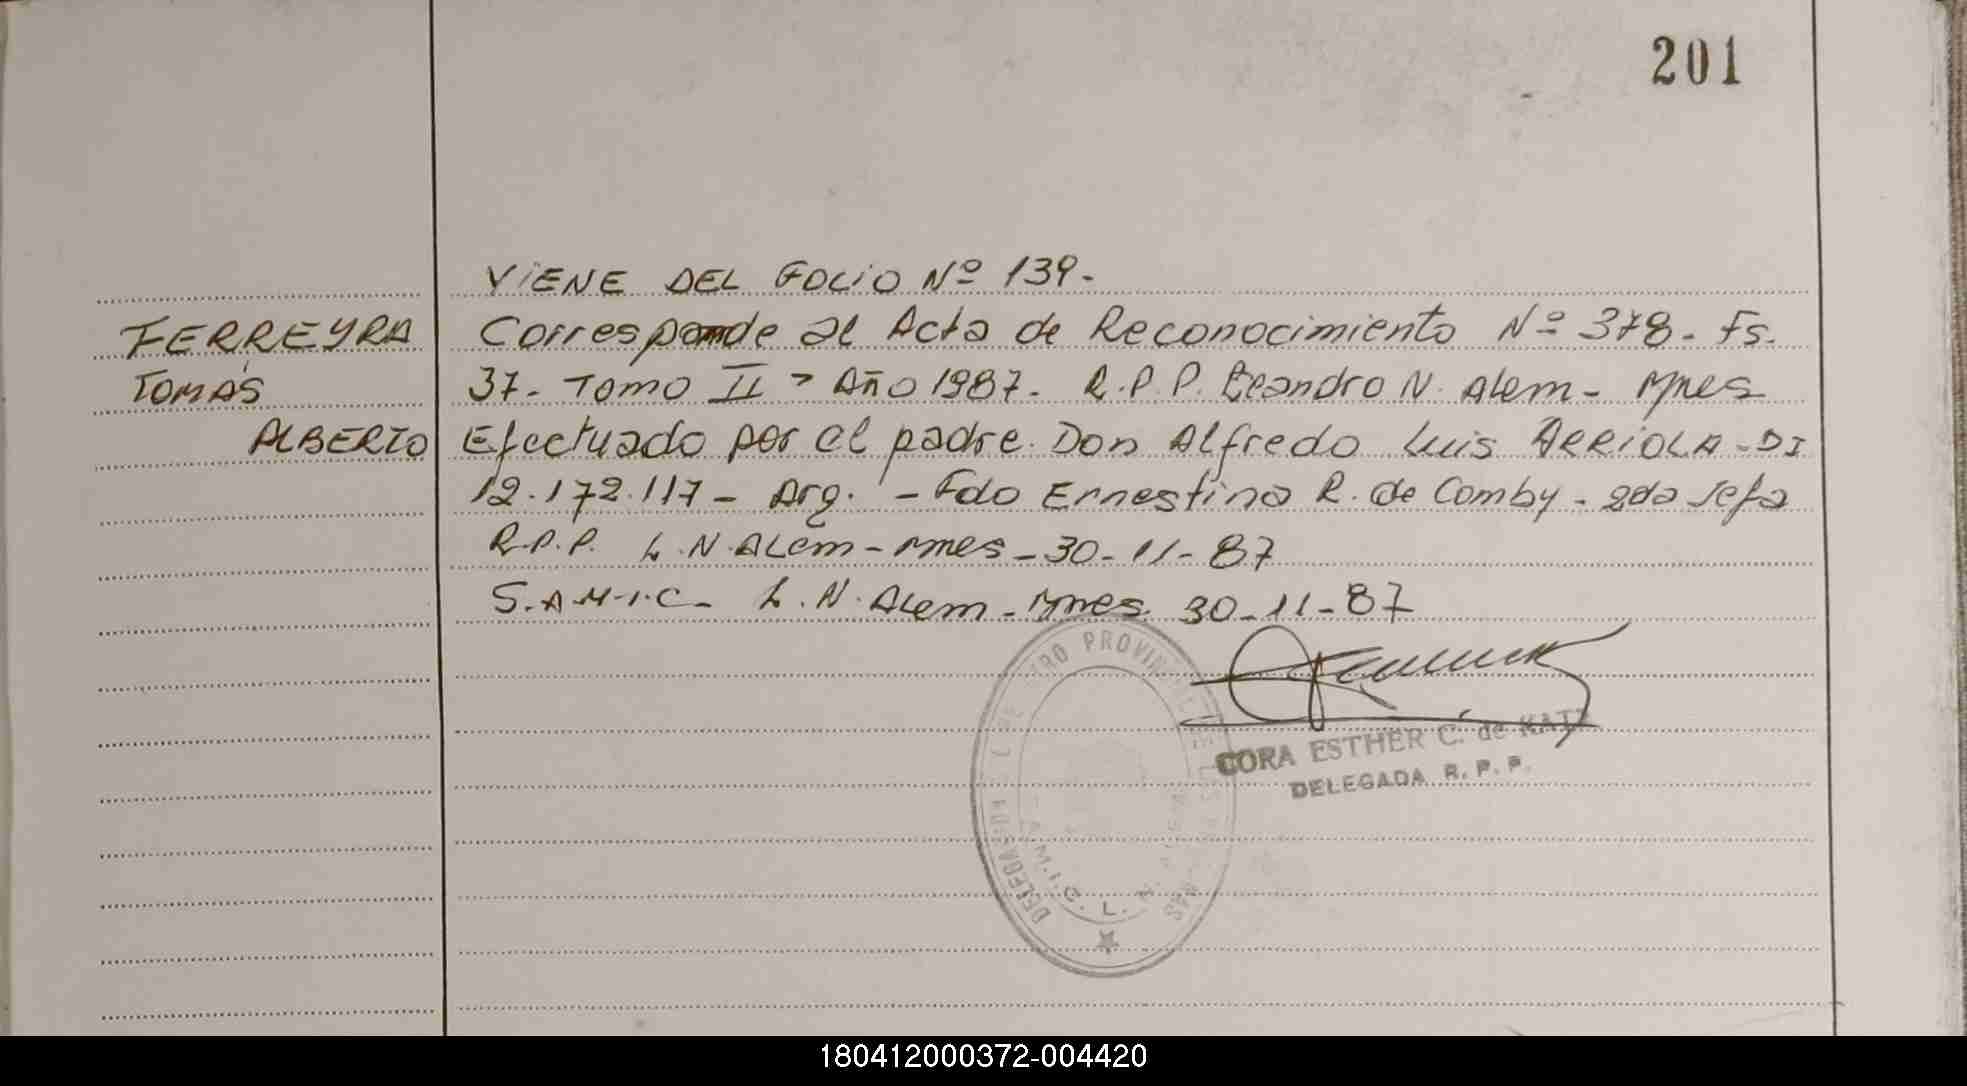 201
VIENE DEL FOLIO Nº 139-
FERREYRA
TOMÁS
ALBERTO
Corresponde al Acta de Reconocimiento Nº 378- Fs.
37- Tomo II - Año 1987- R.P.P. Leandro N. Alem- Mnes
Efectuado por el padre Don Alfredo Luis ARRIOLA- DI
12.172.117- Arg. - Fdo Ernestina R. de Comby- 2da Jefa
R.P.P. L.N. Alem- Mnes- 30-11-87
S.A.M.I.C- L.N. Alem- Mnes. 30-11-87
CORA ESTHER C. de KATZ
DELEGADA R. P. P.
PROVINCIAL
S.A.M.I.C. L. N.
180412000372-004420